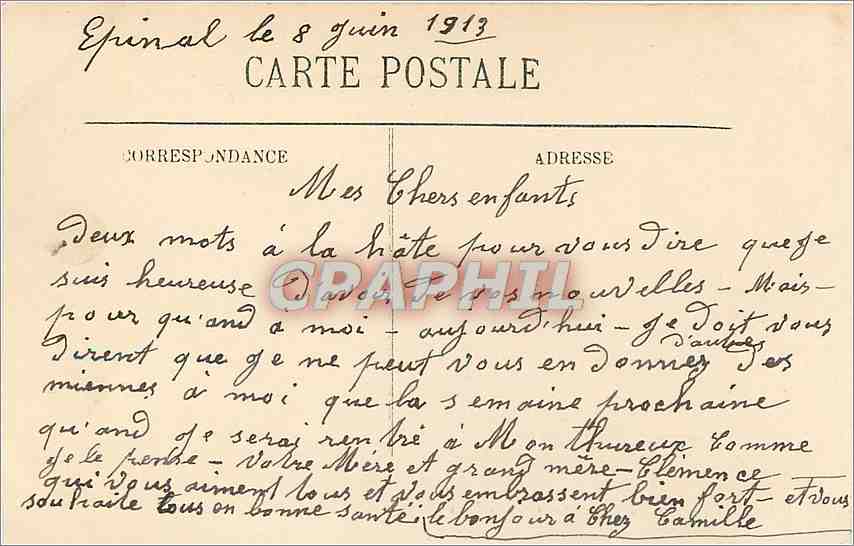 Epinal le 8 Juin 1913
CARTE POSTALE
CORRESPONDANCE
ADRESSE
Mes Chers enfants
Deux mots à la hâte pour vous dire que je
suis heureuse D'avoir De vos nouvelles - Mais -
pour qu'and à moi - aujourd'hui - Je doit vous
dirent que je ne peut vous en donnez d'autres Des
miennes à moi que la semaine prochaine
qu'and Je serai rentré à Monthureux Comme
Je le pense - Votre Mère et grand mère - Clémence
qui vous aiment tous et vous embrassent bien fort - et vous
souhaite tous en bonne santé, le bonjour à Chez Camille
CPAPHIL